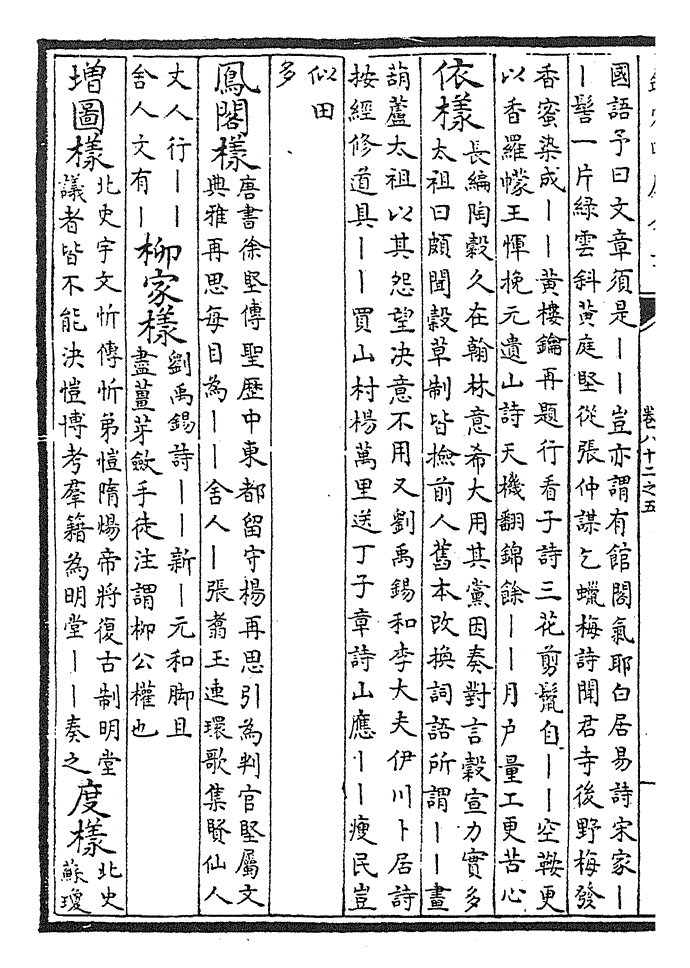 卷八十二之五
國語予曰文章須是丨丨豈亦謂有館閣氣耶白居易詩宋家丨
丨髻一片綠雲斜黃庭堅從張仲謀乞蠟梅詩聞君寺後野梅發
香蜜染成丨丨黃樓鑰再題行看子詩三花剪鬉自丨丨空鞍更
以香羅幪王惲挽元遺山詩天機翻錦餘丨丨月户量工更苦心
依樣
長編陶穀久在翰林意希大用其黨因奏對言穀宣力實多
太祖曰頗聞穀草制皆撿前人舊本改換詞語所謂丨丨畫
葫蘆太祖以其怨望决意不用又劉禹錫和李大夫伊川卜居詩
按經修道具丨丨買山村楊萬里送丁子章詩山應丨丨瘦民豈
似田
多
鳳閣樣
唐書徐堅傳聖歷中東都留守楊再思引為判官堅屬文
典雅再思每目為丨丨舍人丨張翥玉連環歌集賢仙人
丈人行丨丨
舍人文有丨
柳家樣
劉禹錫詩丨丨新丨元和脚且
盡薑芽斂手徒注謂柳公權也
增圖樣
北史宇文忻傳忻弟愷隋煬帝將復古制明堂
議者皆不能決愷博考羣籍為明堂丨丨奏之
度樣
北史
蘇瓊